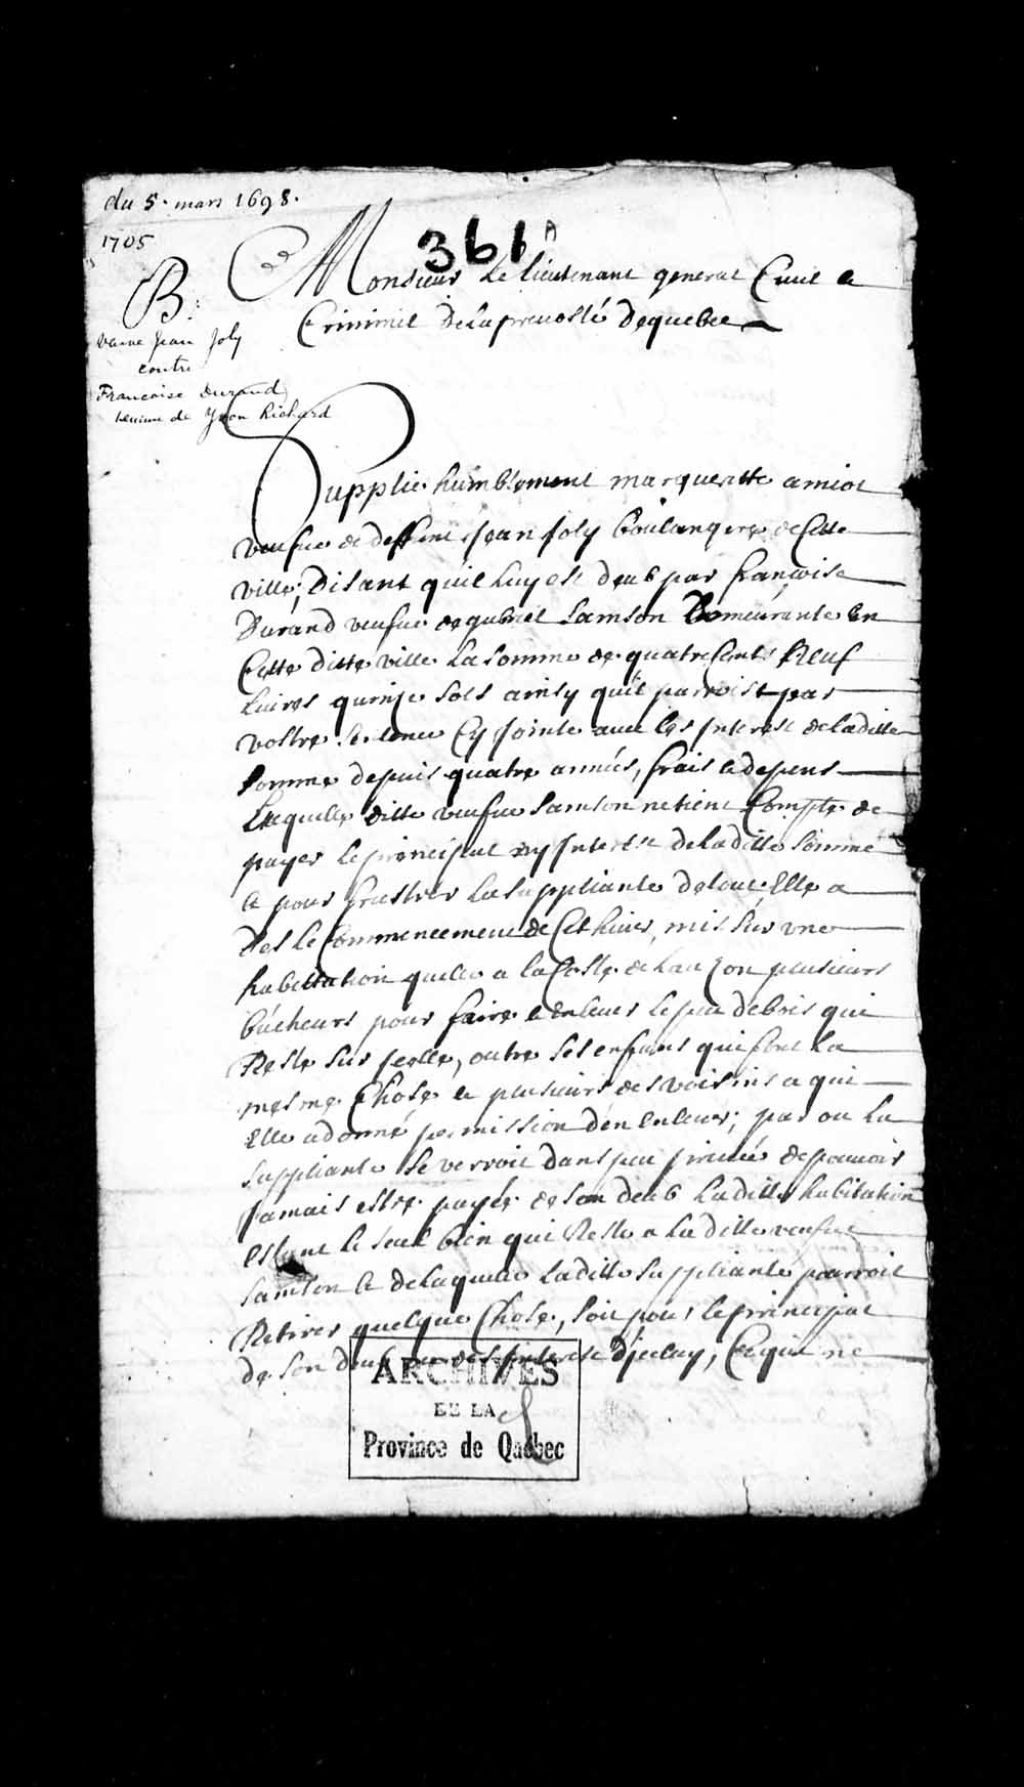 du 5. mars 1698.
1705
361 A
B.
Monsieur Le lieutenant general Civil &
Criminel De La prevosté de quebec
veuve Jean Joly
contre
Francoise Durand,
femme de Jean Richard
Supplie humblement marguerite amiot
veufue de deffunt Jean Joly boulangere de Cette
ville, Disant quil Luy est deub par francoise
Durand veufue de gabriel Samson Demeurante En
Cette ditte ville La somme de quatre Cents Neuf
Liures quinze sols ainsy quil parroist par
vostre Sentence Cy Jointe auec les Interest de laditte
somme depuis quatre années, frais & depens
Laquelle ditte veufue Samson ne tient Compte de
payer Le principal ny Interest de Laditte somme
& pour frustrer La suppliante de tout Elle a
Des Le Commencement de Cet hiuer, mis sur vne
habittation quelle a la Coste de Lauzon plusieurs
bucheurs pour faire & Enleuer le peu de bois qui
Reste sur Jcelle, outre ses enfans qui font La
mesme Chose & plusieurs des voisins a qui
Elle a donné permission den Enleuer; par ou La
suppliante se verroit dans peu priuée de pouuoir
Jamais estre payée de son deub Laditte habitation
estant le seul bien qui Reste a La ditte veufue
Samson & de Laquelle Laditte suppliante pourroit
Retirer quelque Chose, soit pour le principal
de son deub ou des Interest d'jceluy, Ce qui ne
ARCHIVES
DE LA
Province de Québec